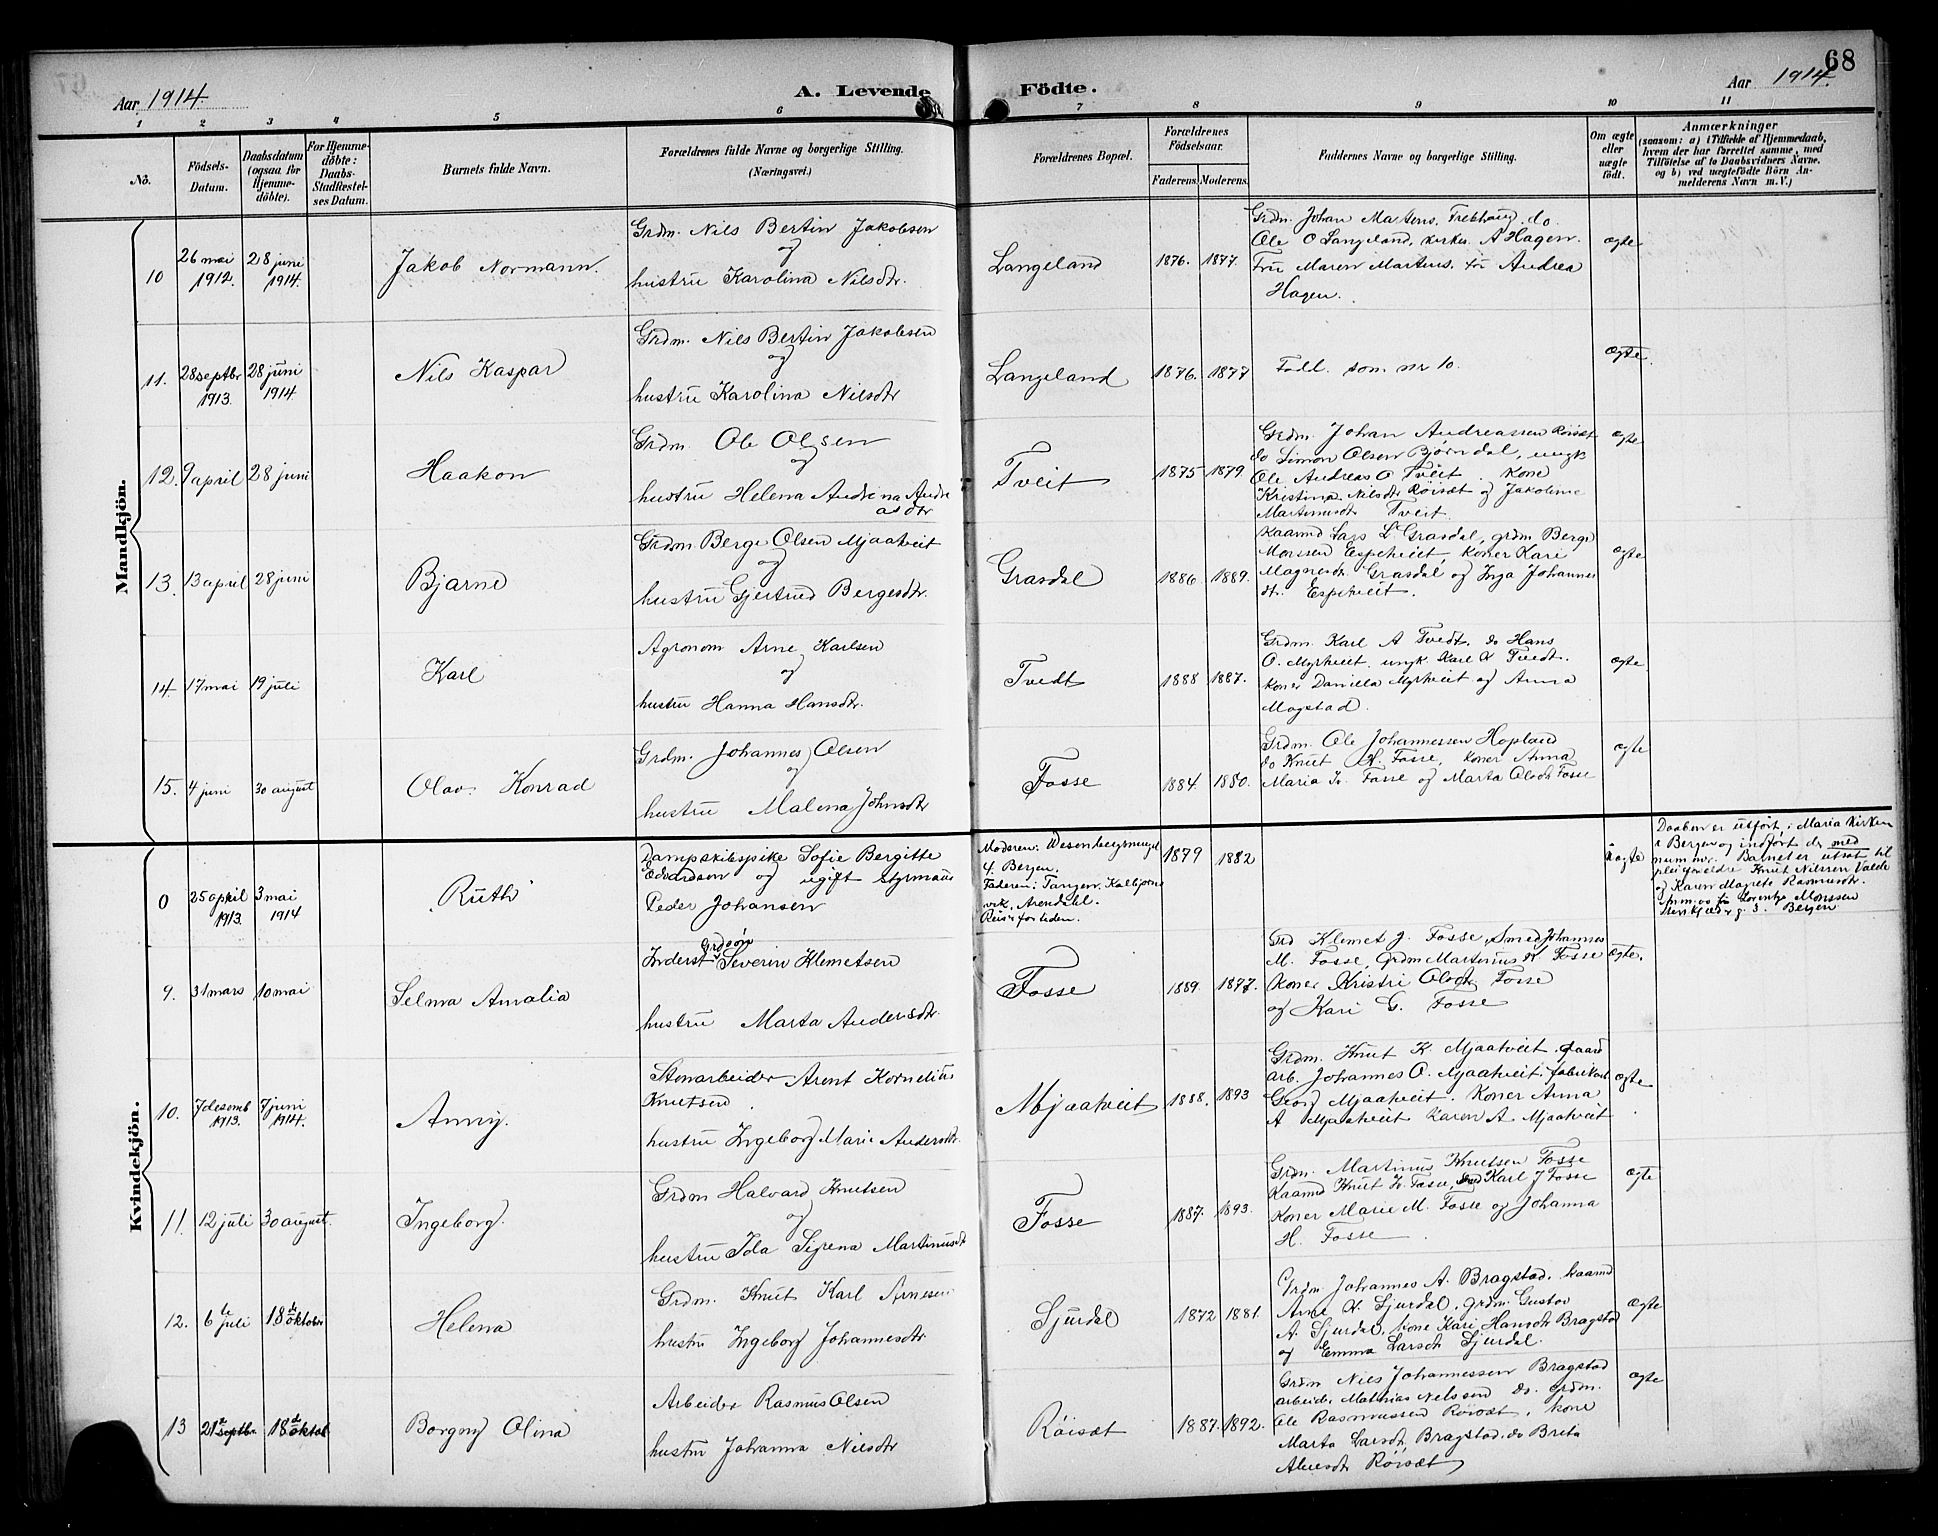 68
Aar 1914.
A. Levende Födte.
Aar 1914.
1 2 3 4 5 6 7 8 9 10 11
No.
Födsels-Datum.
Daabsdatum (ogsaa for Hjemme-döbte).
For Hjemme-döbte: Daabs-Stadfæstel-ses Datum.
Barnets fulde Navn.
Forældrenes fulde Navne og borgerlige Stilling. (Næringsvei.)
Forældrenes Bopæl.
Forældrenes Födselsaar.
Faderens. Moderens.
Faddernes Navne og borgerlige Stilling.
Om ægte eller uægte födt.
Anmærkninger
(saasom: a) i Tilfælde af Hjemmedaab,
hvem der har forrettet samme, med
Tilföielse af to Daabsvidners Navne.
og b) ved uægtefödte Börn An-
melderens Navn m.V.)
Mandkjön.
10
26 mai 1912.
28 juni 1914.
Jakob Normann.
Grdm. Nils Bertin Jakobsen
og
hustru Karolina Nilsdtr.
Langeland
1876. 1877
Grdm. Johan Martens. do.
Ole O Langeland, kirkes. A Hagen.
Fru Maren Martens. fr Andrea
Hagen.
ægte
11.
28 septbr 1913.
28 juni 1914.
Nils Kaspar
Grdm. Nils Bertin Jakobsen
og
hustru Karolina Nilsdtr
Langeland
1876. 1877
Fadd. som nr 10.
ægte.
12.
9 april
28 juni
Haakon
Grdm. Ole Olsen
og
hustru Helena Andrena Andre
asdtr
Tveit
1875 1879
Grdm. Johan Andreassen Röisæt
do Simon Olsen Bjørndal, ungk
Ole Andreas O Tveit. Kone
Kristina Nilsdtr Röisæt og Jakobine
Martinusdtr Tveit.
ægte
13.
13 april
28 juni
Bjarne
Grdm. Berge Olsen Mjaatveit
og
hustru Gjertrud Bergesdtr.
Grasdal
1886 1889.
Kaarmd Lars L Grasdal, grdm Berge
Monssen Espetveit, Koner Kari
Magnesdtr. Grasdal og Inga Johannes
dtr. Espetveit.
ægte
14.
17 mai
19 juli
Karl
Agronom Arne Karlsen
og
hustru Hanna Hansdtr.
Tvedt
1888 1887.
Grdm. Karl A Tvedt. do Hans
O. Myrtveit. ungk. Karl K Tvedt.
Koner Daniella Myrtveit og Anna
Mogstad.
ægte
15.
4 juni
30 august
Olav Konrad
Grdm. Johannes Olsen
og
hustru Malena Johnsdtr
Fosse
1884. 1880.
Grdm. Ole Johannessen Hopland
do Knut K. Fosse, koner Anna
Maria K. Fosse og Marta Olsdtr Fosse
ægte
Kvindekjön.
0
25 april 1913.
3 mai 1914
Ruth
Dampskibspike Sofie Bergitte
Edvardsen og ugift styrmann
Peder Johansen
Moderen:
4. Bergen.
Faderen: Tangen, Kalbjørns
vik, Arendahl.
Reis. for tiden.
1879 1882
uægte
Daaben er utført i Maria Kirken
i Bergen og indført der med
nummer. Barnet er utsat til
pleieforeldre Knut Nilssen Valde
og Karen Margrete Rasmusdtr.
Monssen
Bergen.
9.
31 mars
10 mai
Selma Amalia
Inderst Grdsøn Severin Klemetsen
hustru Marta Andersdtr.
Fosse
1889. 1897.
Grd Klemet J. Fosse, Smed Johannes
M. Fosse, Grdm Martinius K Fosse
Koner Kristi Olsdtr Fosse
og Kari G. Fosse
ægte.
10.
7 desemb 1913.
7 juni 1914.
Anny.
Stenarbeider Arent Kornelius
Knutsen
hustru Ingeborg Marie Andersdtr.
Mjaatveit
1888. 1893
Grdm. Knut K. Mjaatveit, gaard
arb. Johannes O. Mjaatveit, fabrikarb
Georg Mjaatveit. Koner Anna
A Mjaatveit Karen A. Mjaatveit
ægte
11.
12 juli
30 august.
Ingeborg.
Grdm Halvard Knutsen
og
hustru Ida Sirena Martinusdtr
Fosse
1887. 1893.
Grdm. Martinus Knutsen Fosse
Kaarmd Knut K. Fosse, Karl J Fosse
Koner Marie M. Fosse og Johanna
H. Fosse
ægte
12.
6te juli
18de oktober
Helena
Grdm. Knut Karl Arnesen
hustru Ingeborg Johannesdtr
Sjurdal
1872 1881.
Grdm. Johannes A. Bragstad. kaarmd
Arne K. Sjurdal, grdm. Gustav
A. Sjurdal, kone Kari Hansdtr Bragstad
og Emma Larsdtr Sjurdal.
ægte
13
21de septbr.
18de oktob
Borgny Olina
Arbeider Rasmus Olsen
hustru Johanna Nilsdtr
Röisæt
1887. 1892.
Grdm Nils Johannessen Bragstad
arbeider Mathias Nelssen do. grdm.
Ole Rasmussen Röisæt, kone
Marta Larsdtr Bragstad. do Brita
Röisæt
ægte